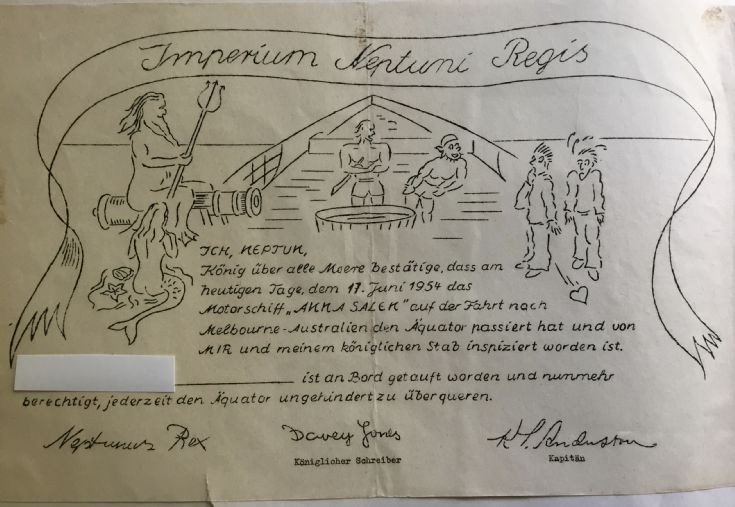 Imperium Neptuni Regis
ICH, NEPTUN,
König über alle Meere bestätige, dass am
heutigen Tage, dem 17. Juni 1954 das
Motorschiff „ANNA SALEN" auf der Fahrt nach
Melbourne-Australien den Äquator passiert hat und von
MIR und meinem königlichen Stab inspiziert worden ist.
ist an Bord getauft worden und nunmehr
berechtigt, jederzeit den Äquator ungehindert zu überqueren.
Neptunus Rex Davey Jones
Königlicher Schreiber Kapitän